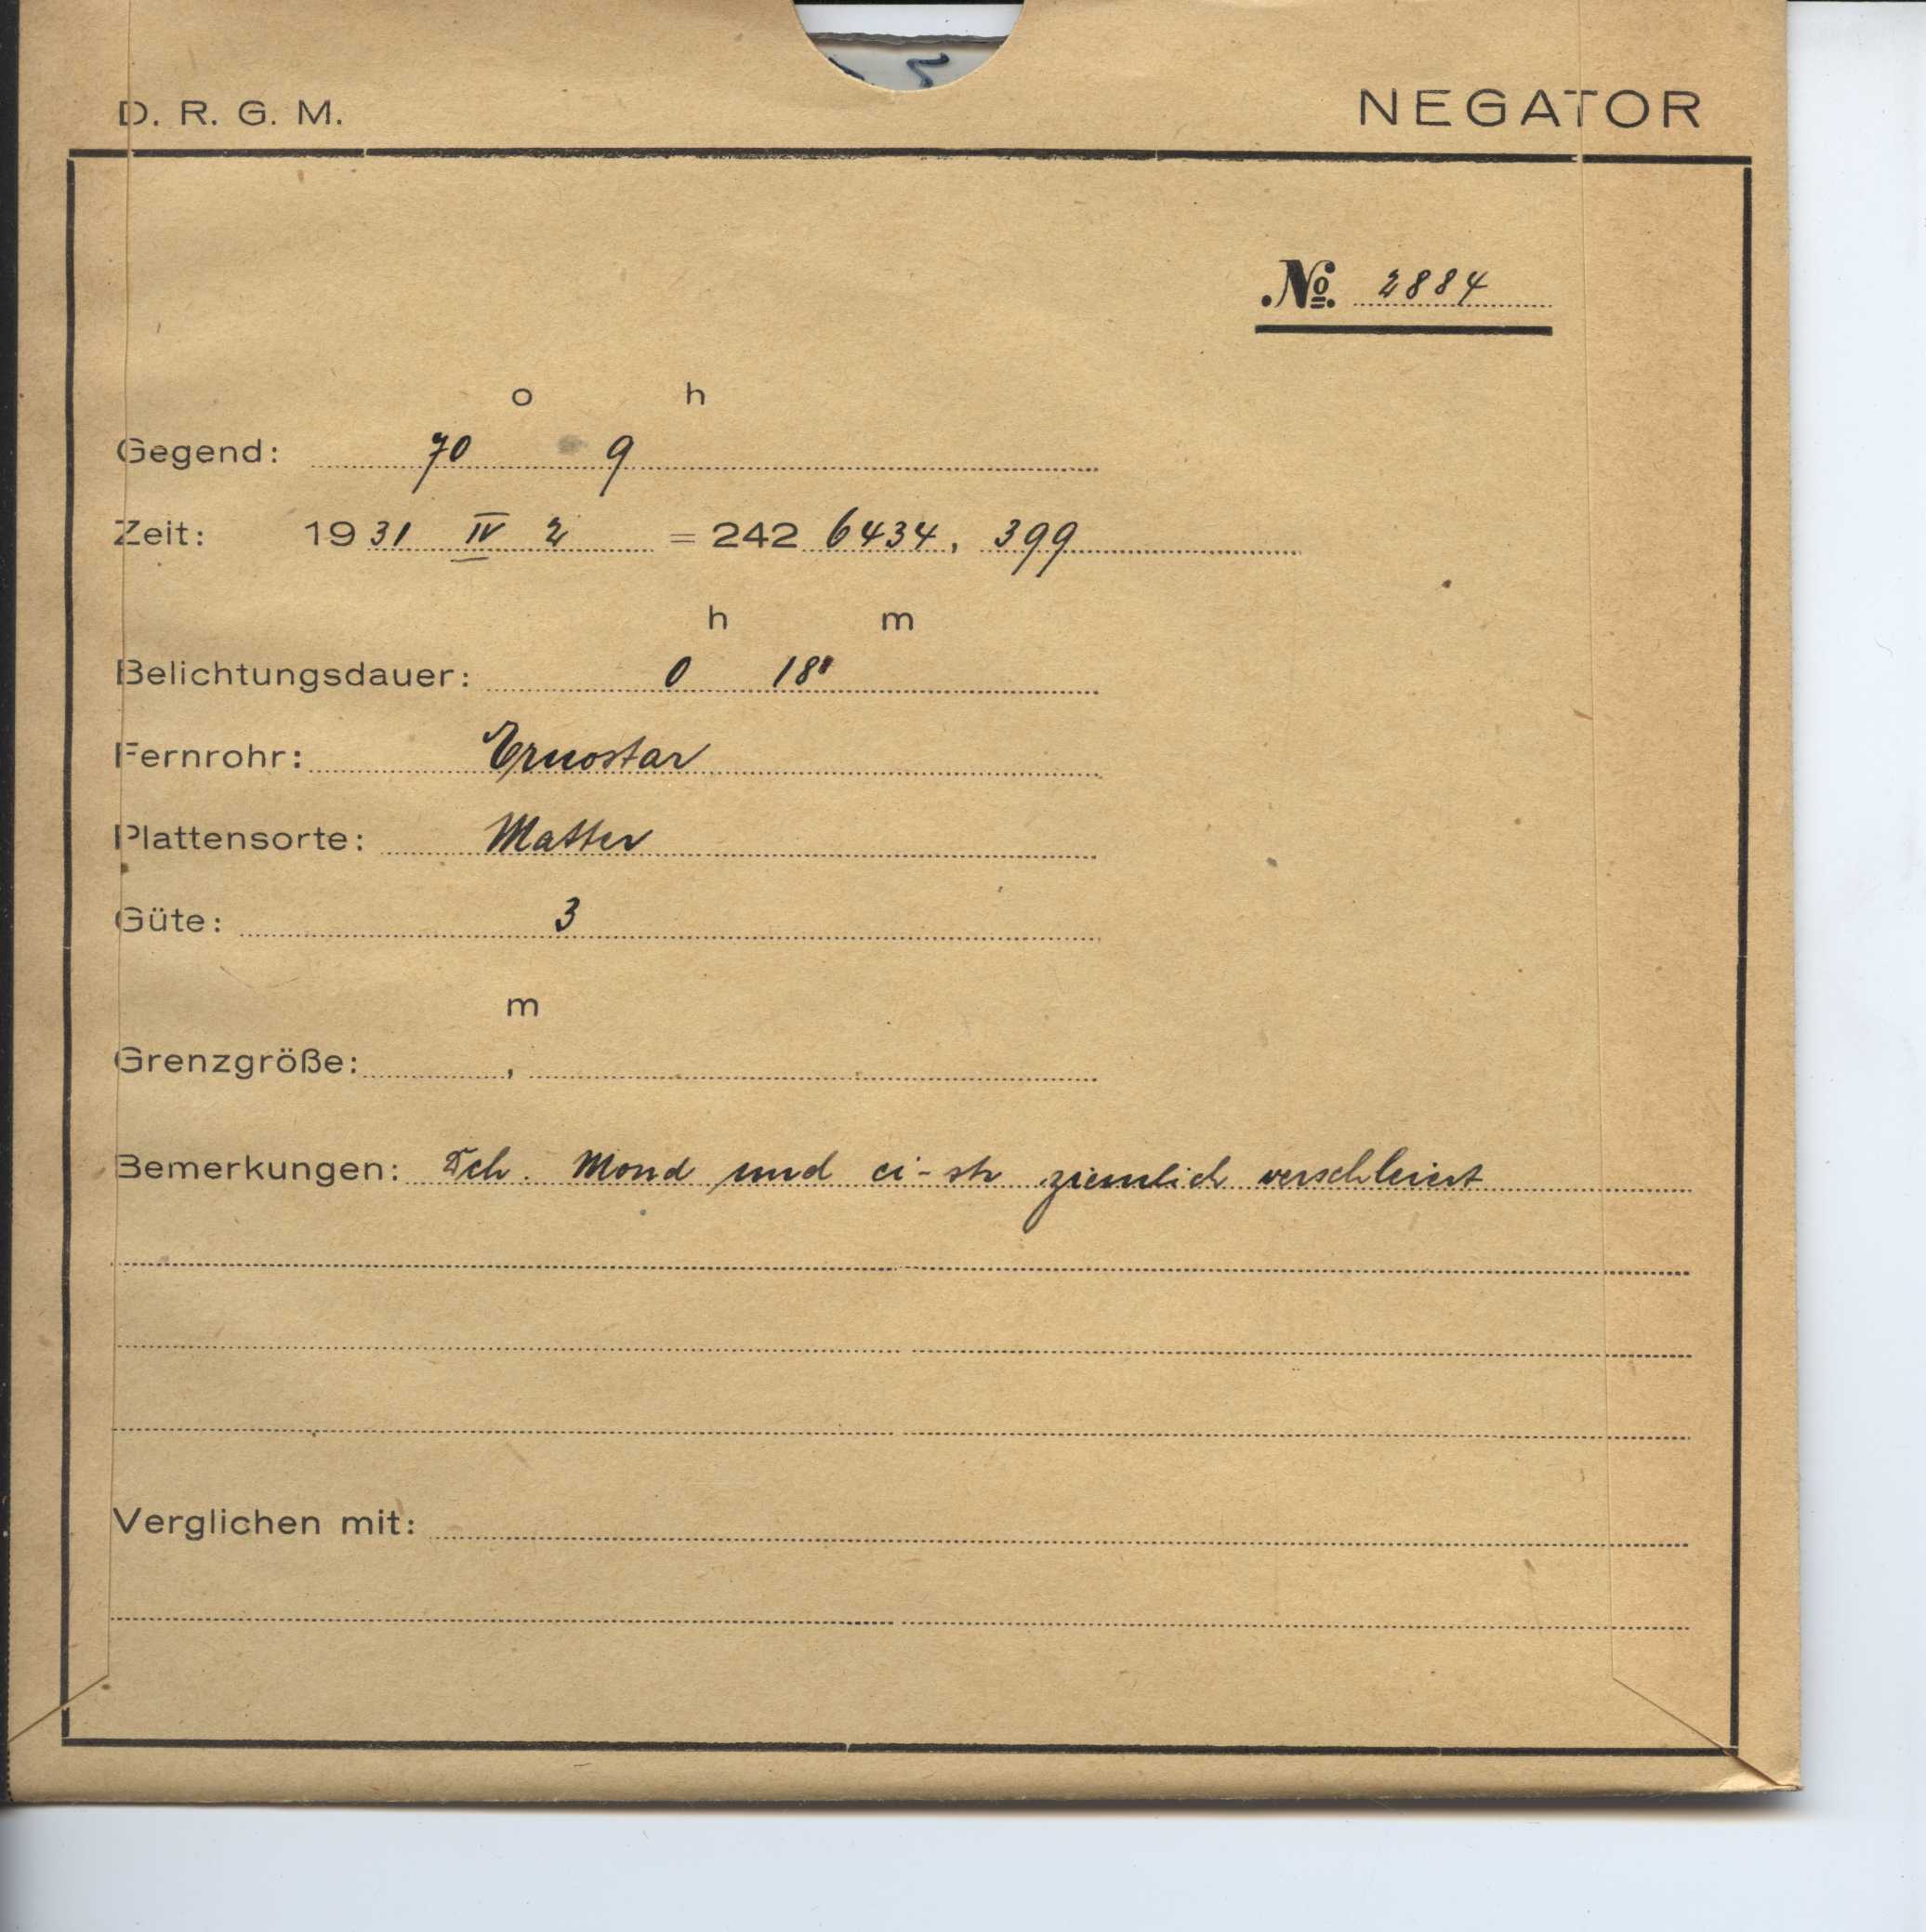 D. R. G. M. NEGATOR
№ 2884
o h
Gegend: 70 9
Zeit: 1931 IV 2 = 242 6434, 399
h m
Belichtungsdauer: 0 18'
Fernrohr: Ernostar
Plattensorte: Matter
Güte: 3
m
Grenzgröße: ,
Bemerkungen: Dch. Mond und ci-str ziemlich verschleiert
Verglichen mit: